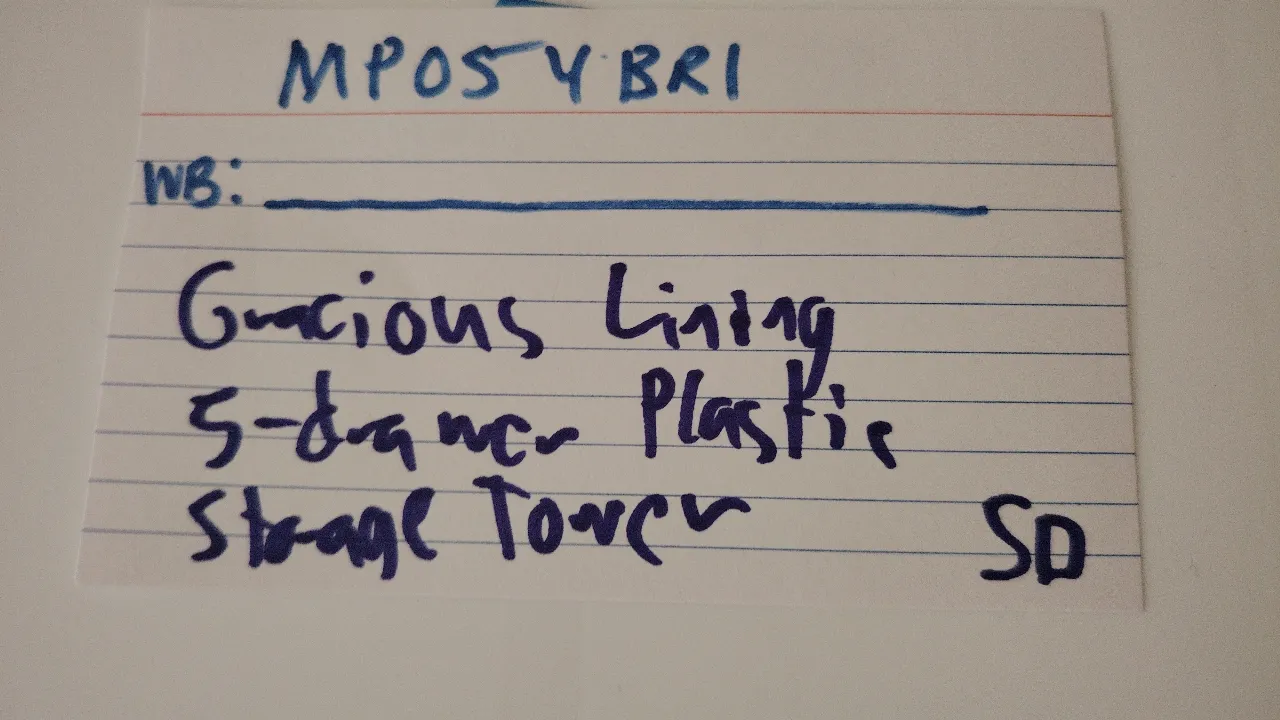 MP054BR1
WB:
Gracious Lining
5-drawer Plastic
Storage Tower SD